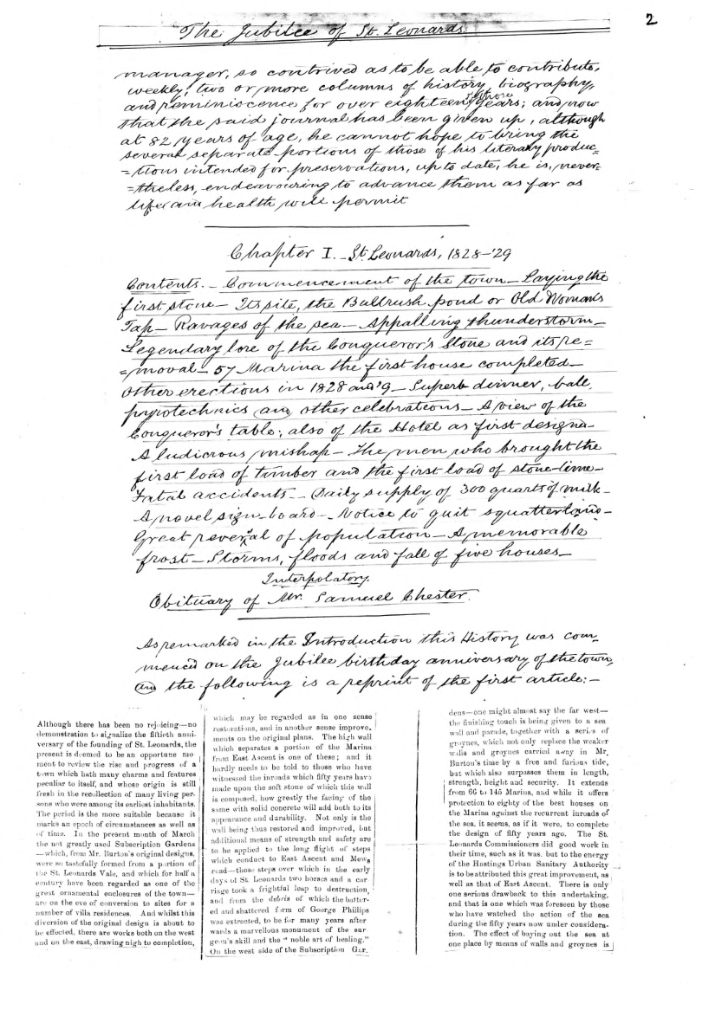 The Jubilee of St. Leonards
2
manager, so contrived as to be able to contribute,
weekly, two or more columns of history, biography,
and reminiscence for over eighteen years; and now
that the said journal has been given up, although
at 82 years of age, he cannot hope to bring the
several separate portions of those of his literary produc-
=tions intended for preservations, up to date, he is, never-
=theless, endeavouring to advance them as far as
life and health will permit
Chapter I. St Leonards, 1828-'29
Contents. – Commencement of the town – Laying the
first stone – Its site, the Bullrush pond or Old Woman's
Tap – Ravages of the sea – Appalling thunderstorm –
Legendary lore of the Conqueror's Stone and its re=
=moval – 57 Marina the first house completed –
Other erections in 1828 and '9 – Superb dinner, ball,
pyrotechnics and other celebrations – A view of the
Conqueror's table; also of the Hotel as first design
A ludicrous mishap – The men who brought the
first load of timber and the first load of stone-lime –
Fatal accidents – Daily supply of 300 quarts of milk –
A novel sign-board – Notice to quit squatter
Great reversal of population – A memorable
frost – Storms, floods and fall of five houses –
Interpolatory
Obituary of Mr. Samuel Chester.
As remarked in the Introduction this History was com-
menced on the Jubilee birthday anniversary of the town,
and the following is a reprint of the first article:–
Although there has been no rejoicing—no
demonstration to signalize the fiftieth anni-
versary of the founding of St. Leonards, the
present is deemed to be an opportune mo-
ment to review the rise and progress of a
town which hath many charms and features
peculiar to itself, and whose origin is still
fresh in the recollection of many living per-
sons who were among its earliest inhabitants.
The period is the more suitable because it
marks an epoch of circumstances as well as
of time. In the present month of March
the not greatly used Subscription Gardens
—which, from Mr. Burton's original designs,
were so tastefully formed from a portion of
the St. Leonards Vale, and which for half a
century have been regarded as one of the
great ornamental enclosures of the town—
are on the eve of conversion to sites for a
number of villa residences. And whilst this
diversion of the original design is about to
be effected, there are works both on the west
and on the east, drawing nigh to completion,
which may be regarded as in one sense
restorations, and in another sense improve-
ments on the original plans. The high wall
which separates a portion of the Marina
from East Ascent is one of these; and it
hardly needs to be told to those who have
witnessed the inroads which fifty years have
made upon the soft stone of which this wall
is composed, how greatly the facing of the
same with solid concrete will add both to its
appearance and durability. Not only is the
wall being thus restored and improved, but
additional means of strength and safety are
to be applied to the long flight of steps
which conduct to East Ascent and Mews
road—those steps over which in the early
days of St. Leonards two horses and a car-
riage took a frightful leap to destruction,
and from the debris of which the batter-
ed and shattered form of George Philipps
was extracted, to be for many years after
wards a marvellous monument of the sur-
geon's skill and the "noble art of healing."
On the west side of the Subscription Gar-
dens—one might almost say the far west—
the finishing touch is being given to a sea
wall and parade, together with a series of
groynes, which not only replace the weaker
walls and groynes carried away in Mr,
Burton's time by a free and furious tide,
but which also surpasses them in length,
strength, height and security. It extends
from 66 to 145 Marina, and while it offers
protection to eighty of the best houses on
the Marina against the recurrent inroads of
the sea, it seems, as if it were, to complete
the design of fifty years ago. The St.
Leonards Commissioners did good work in
their time, such as it was, but to the energy
of the Hastings Urban Sanitary Authority
is to be attributed this great improvement, as
well as that of East Ascent. There is only
one serious drawback to this undertaking,
and that is one which was foreseen by those
who have watched the action of the sea
during the fifty years now under considera-
tion. The effect of buying out the sea at
one place by means of walls and groynes is